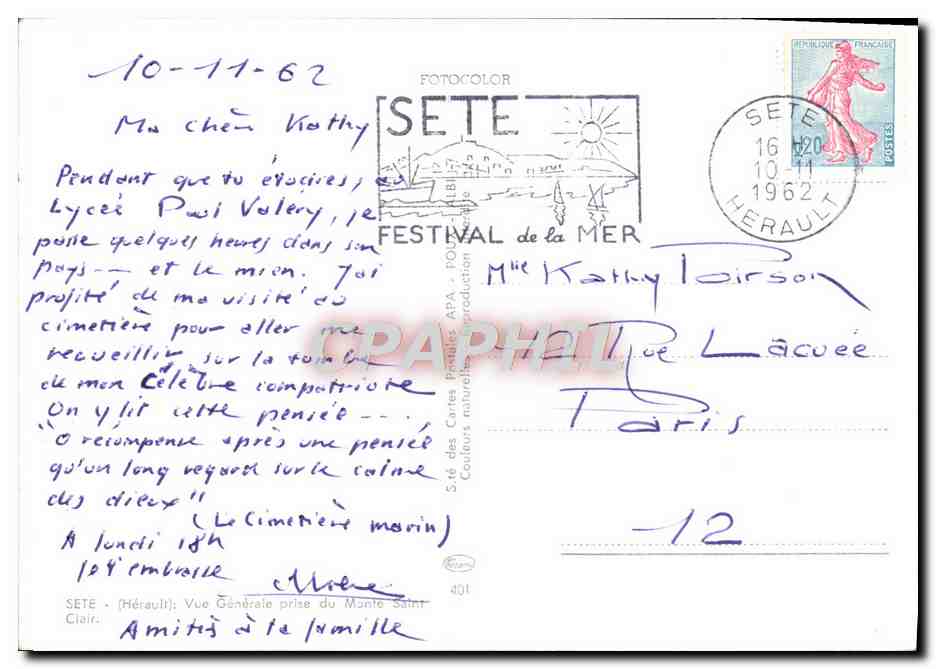 10-11-62
Ma chère Kathy
Pendant que tu étudies, au
Lycée Paul Valery, je
passe quelques heures dans son
pays -- et le mien. J'ai
profité de ma visite au
cimetière pour aller me
recueillir sur la tombe
de mon célèbre compatriote
On y lit cette pensée ---
"O récompense après une pensée
qu'un long regard sur le calme
des dieux"
(Le Cimetière marin)
A lundi 18h
Je t'embrasse
Amitiés à la famille
SETE - (Hérault): Vue Générale prise du Monte Saint
Clair.
FOTOCOLOR
SETE
FESTIVAL de la MER
S.té des Cartes Postales APA - POUX - ALBI
Couleurs naturelles
401
REPUBLIQUE FRANÇAISE
POSTES
SETE
16 H20
10-11
1962
HERAULT
Mlle Kathy Poirson
12 Rue Lacuée
Paris
12
CPAPHIL